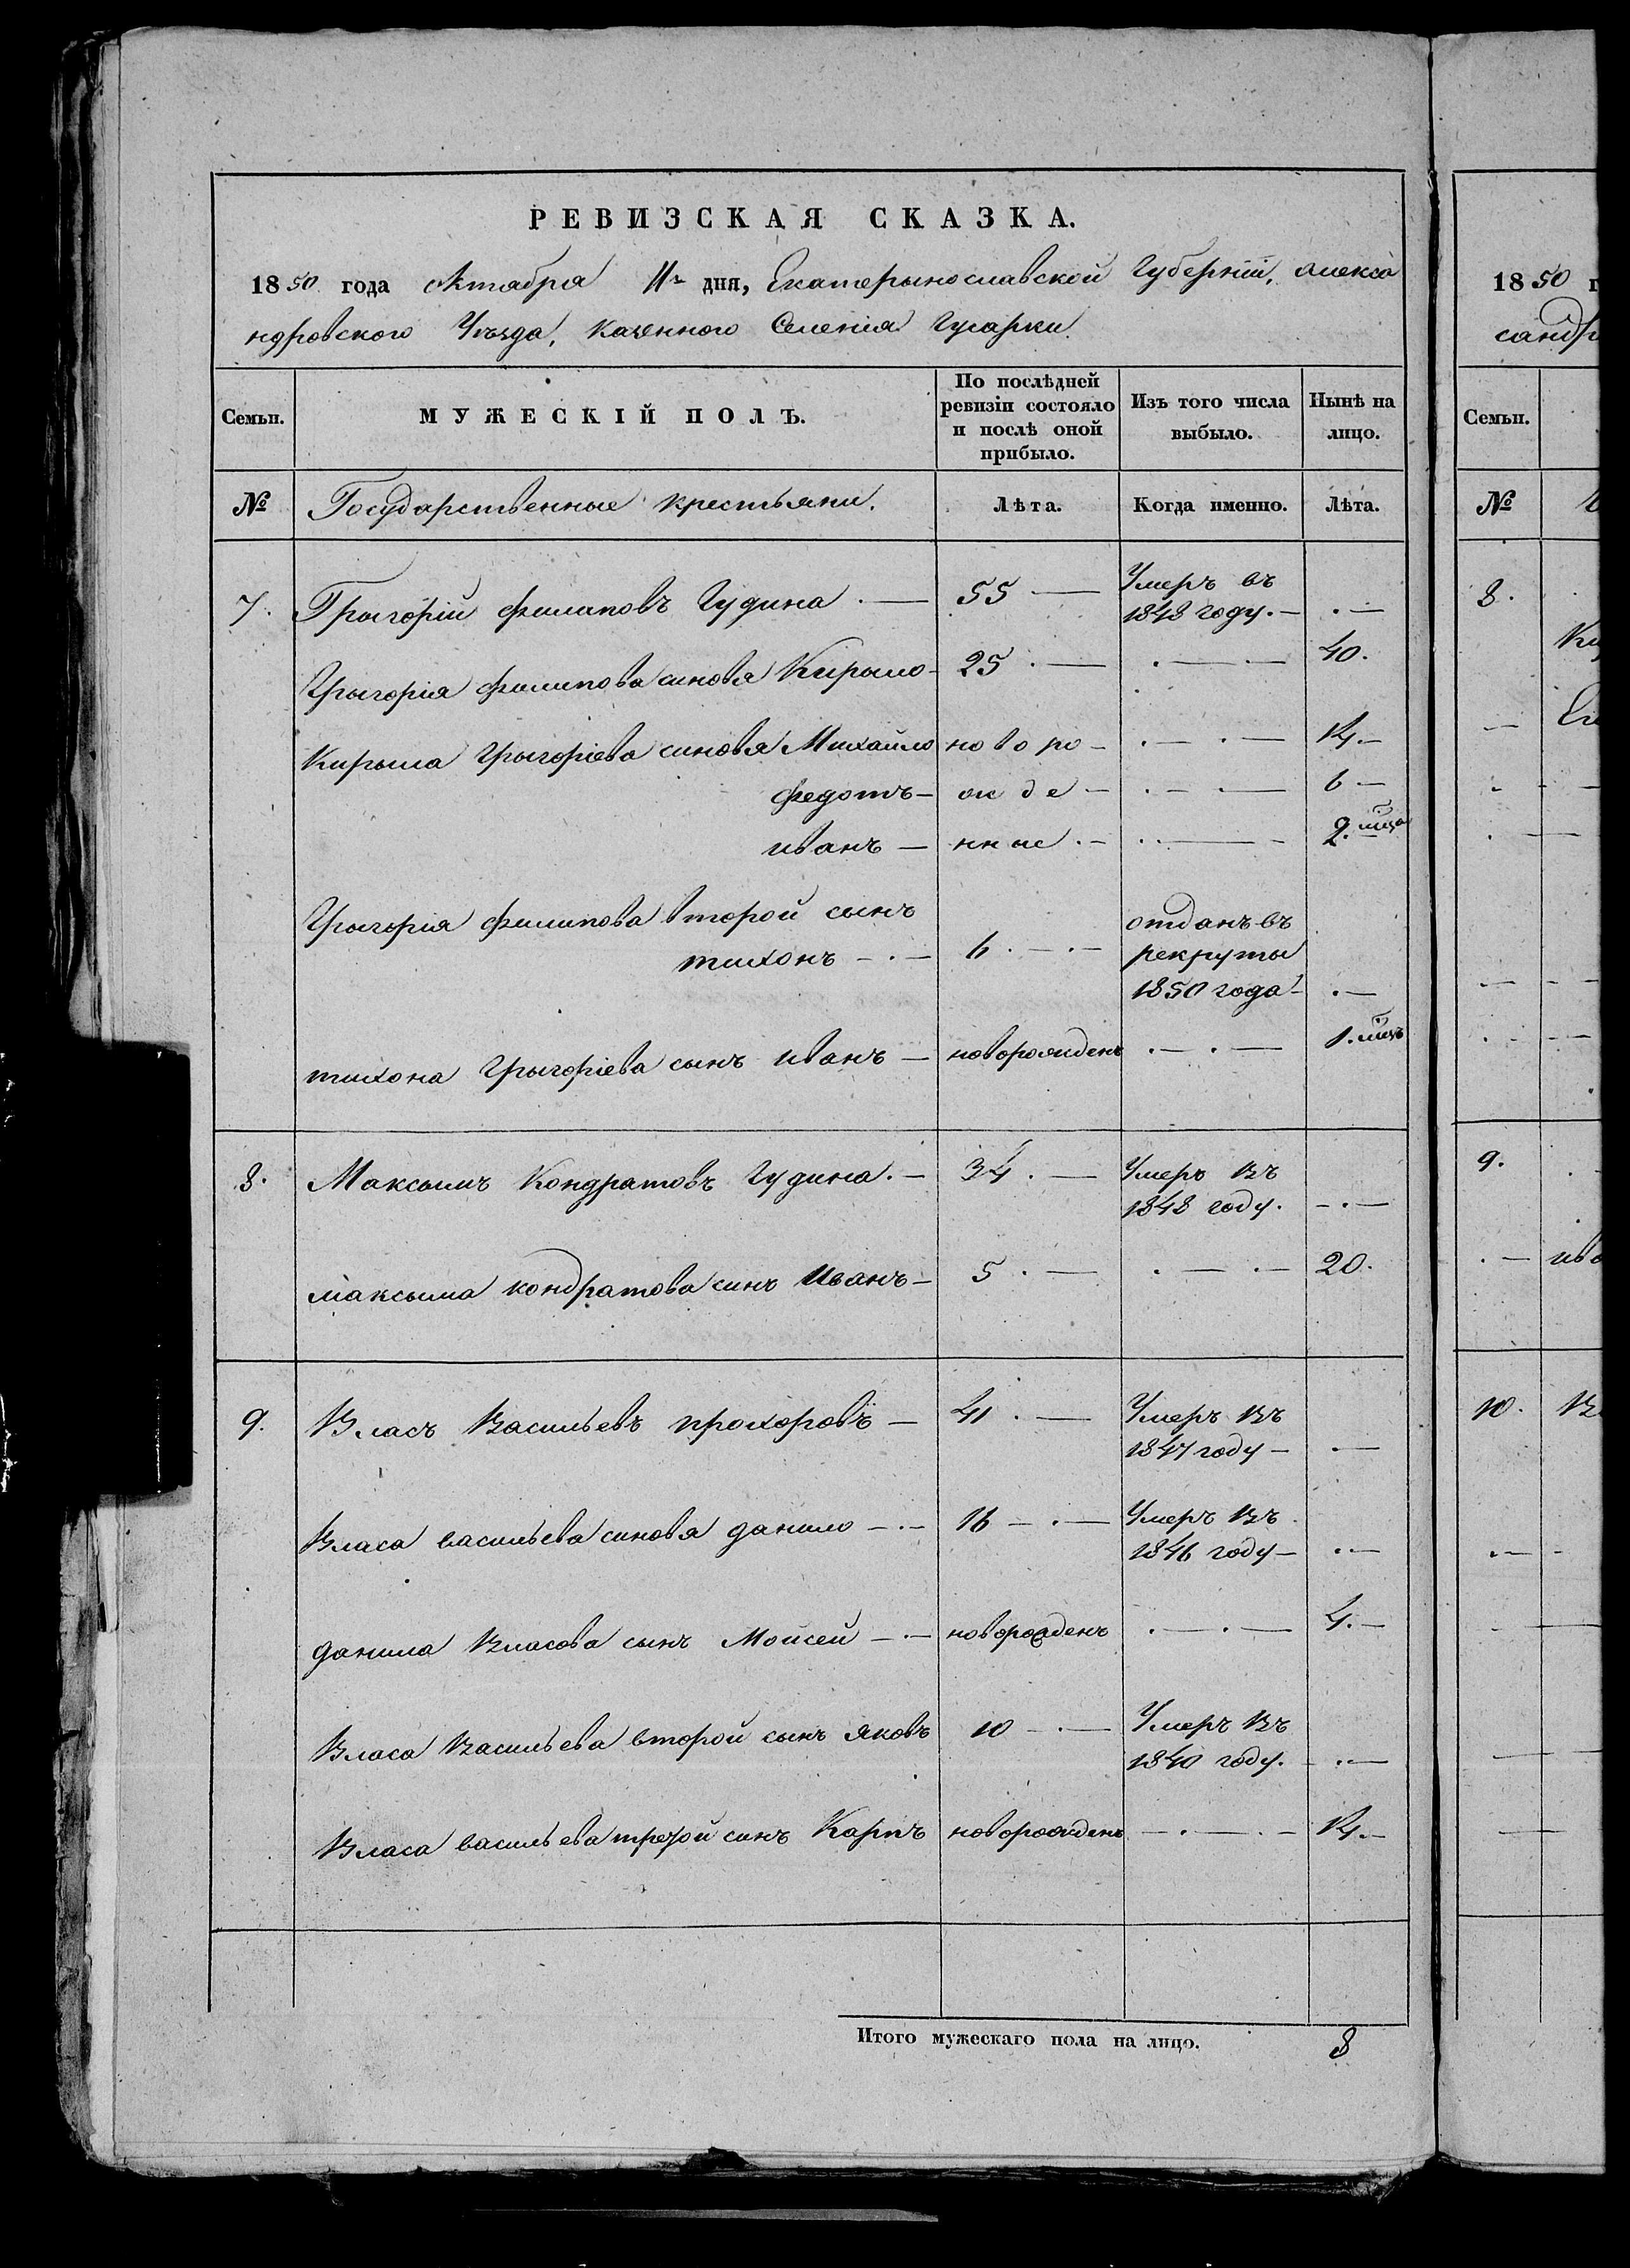 РЕВИЗСКАЯ СКАЗКА.
1850 года октября 11го дня, Екатерынославской Губерніи, алекса
ндровского Уѣзда, казенного Селенія Гусарки
Семьи.
МУЖЕСКІЙ ПОЛЪ.
По послѣдней
ревизіи состояло
и послѣ оной
прибыло.
Изъ того числа
выбыло.
Нынѣ на
лицо.
№ Государственные крестьяни. Лѣта. Когда именно. Лѣта.
7. Грыгорій филиповъ Гудина .— 55 — Умеръ въ
1848 году.— .—
Грыгорія филипова синовя Кирыло- 25 .— .—— 40.
Кирыла Грыгоріева синовя Михайло новоро- .—.— 14.—
федотъ— жде- .—.— 6—
иванъ— нные.- .—— 2. мца
Грыгорія филипова второй сынъ
тихонъ -.— 6.—.— отданъ въ
рекруты
1850 года- .—
тихона Грыгоріева сынъ иванъ — новорожденъ .—.— 1. мцъ
8. Максымъ Кондратовъ Гудина.— 34.— Умеръ въ
1848 году. -.—
максыма кондратова синъ Иванъ— 5.— .—.— 20.
9. Власъ Васильевъ прохоровъ — 41.— Умеръ въ
1847 году — .—
Власа васильева синовя данило -.— 16 -.— Умеръ въ
1846 году— .—
данила Власова сынъ Мойсей -.— новорожденъ .—.— 4.—
Власа Васильева второй сынъ яковъ 10 -.— Умеръ въ
1840 году. .—
Власа васильева третой синъ Карпъ новорожденъ —.—.— 14.—
Итого мужескаго пола на лицо. 8
1850 г
сандр
Семьи.
№
8.
9.
ива
10.